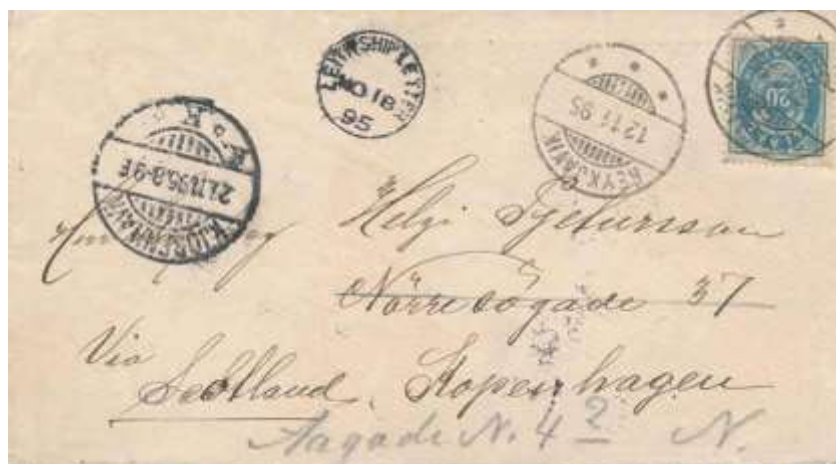 LEITH SHIP LETTER
NO 18
95
REYKJAVIK
12.11.95
20
KJØBENHAVN
21.11.95.8-9 F
K
Helgi Pjetursson
Nörresögade 37
Via
Scotland, Kopenhagen
Aagade N. 4 2 N.